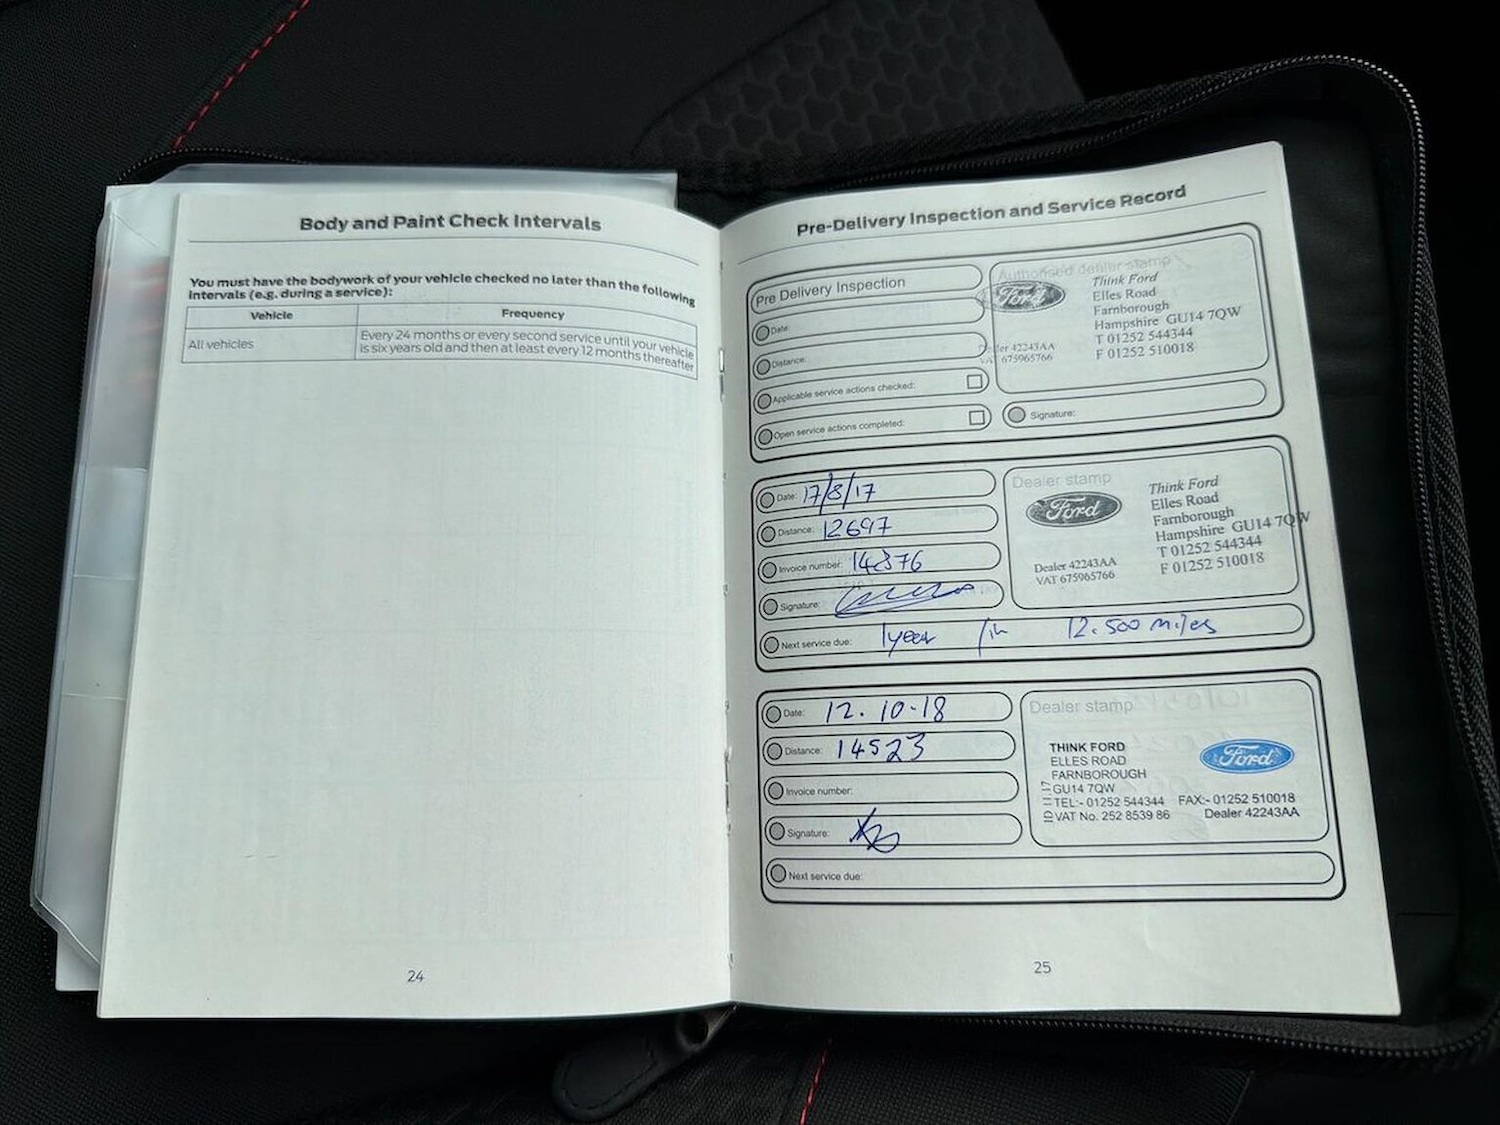 Body and Paint Check Intervals
You must have the bodywork of your vehicle checked no later than the following
intervals (e.g. during a service):
Vehicle Frequency
All vehicles Every 24 months or every second service until your vehicle
is six years old and then at least every 12 months thereafter
24
Pre-Delivery Inspection and Service Record
Pre Delivery Inspection
Date:
Distance:
Applicable service actions checked:
Open service actions completed:
Authorised dealer stamp
Ford
Think Ford
Elles Road
Farnborough
Hampshire GU14 7QW
T 01252 544344
F 01252 510018
Dealer 42243AA
VAT 675965766
Signature:
Date: 17/8/17
Distance: 12697
Invoice number: 14876
Signature:
Dealer stamp
Ford
Think Ford
Elles Road
Farnborough
Hampshire GU14 7QW
T 01252 544344
F 01252 510018
Dealer 42243AA
VAT 675965766
Next service due: 1 year / in 12.500 miles
Date: 12.10-18
Distance: 14523
Invoice number:
Signature:
Dealer stamp
THINK FORD
ELLES ROAD
FARNBOROUGH
GU14 7QW
TEL:- 01252 544344 FAX:- 01252 510018
VAT No. 252 8539 86 Dealer 42243AA
Ford
ID 11-17
Next service due:
25